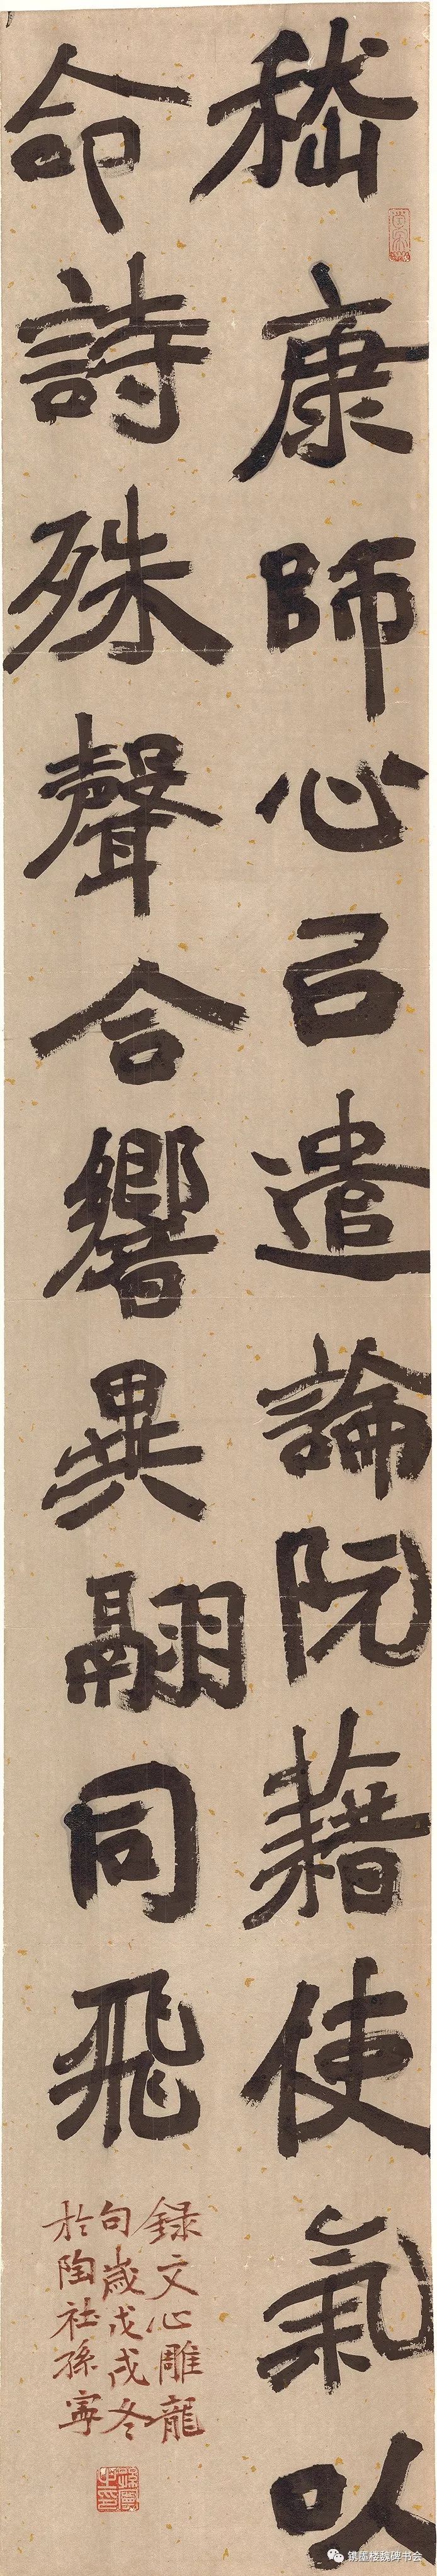 嵇康師心㠯遣論阮藉使氣以
命詩殊聲合響異翮同飛
録文心雕龍
句歲戊戌冬
於陶社孫寧
孫寧
镌墨楼魏碑书会